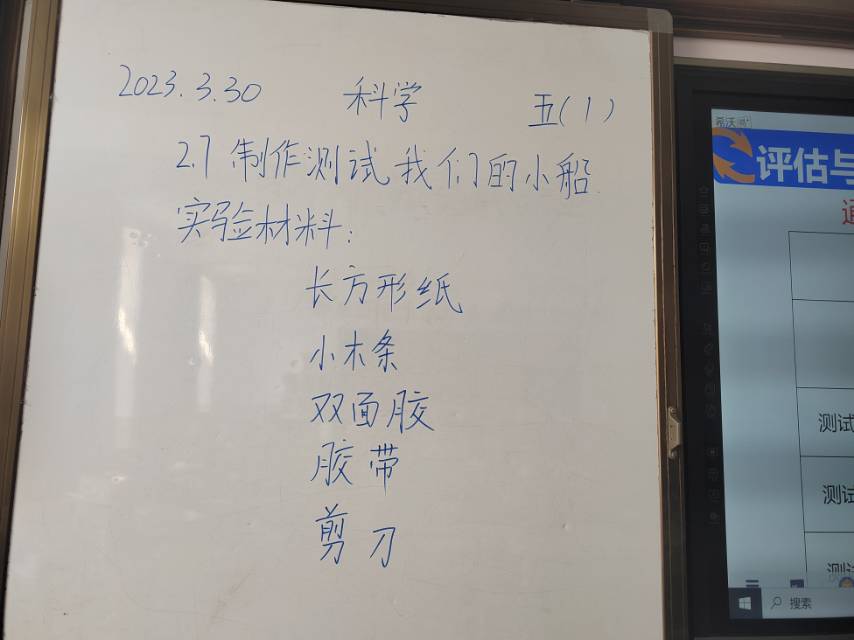 2023.3.30 科学 五(1)
2.7 制作测试我们的小船
实验材料:
长方形纸
小木条
双面胶
胶带
剪刀
希沃
评估与
测试
测试
测试
搜索